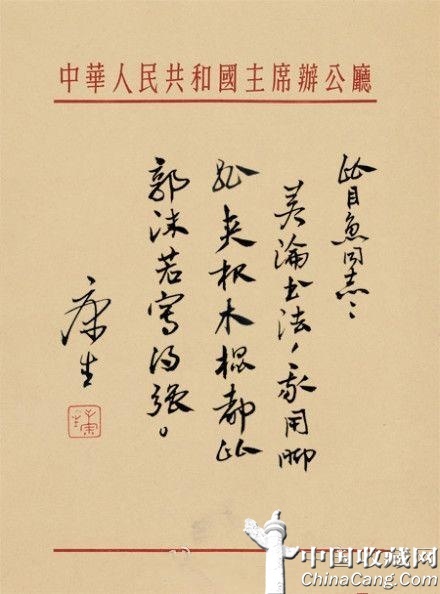 中華人民共和國主席辦公廳
比目魚同志：
若論书法，我用脚
趾夾根木棍都比
郭沫若寫得強。
康生
中国收藏网
ChinaCang.com